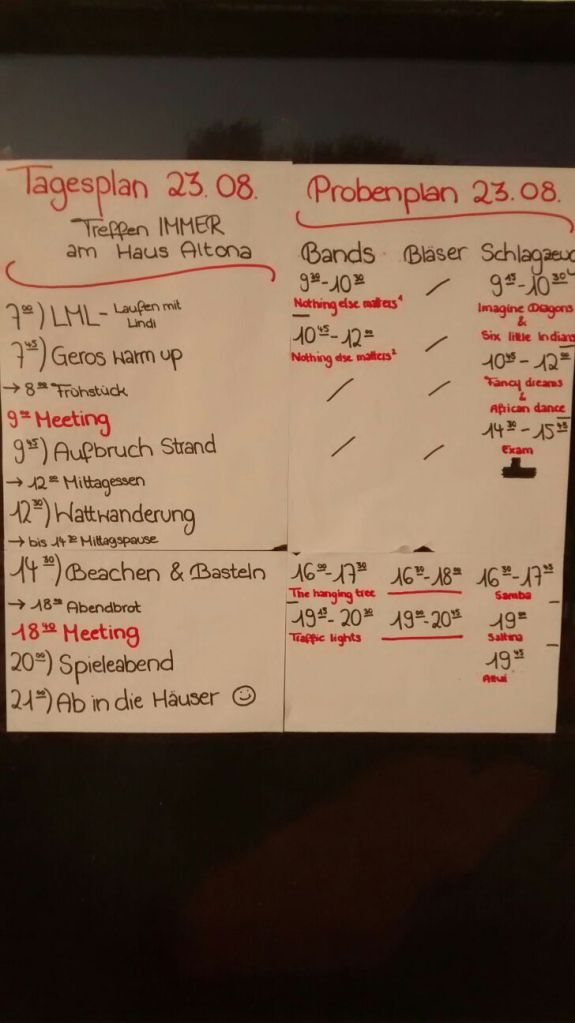 Tagesplan 23.08.
Treffen IMMER
am Haus Altona
7⁰⁰) LML - Laufen mit
Lindi
7⁴⁵) Geros warm up
→ 8³⁰ Frühstück
Meeting
9⁴⁵) Aufbruch Strand
→ 12⁰⁰ Mittagessen
12³⁰) Wattwanderung
→ bis 14³⁰ Mittagspause
14³⁰) Beachen & Basteln
→ 18⁰⁰ Abendbrot
18⁴⁰ Meeting
20⁰⁰) Spieleabend
Ab in die Häuser ☺
Probenplan 23.08.
Bands Bläser Schlagzeug
9³⁰-10³⁰ / 9¹⁵-10³⁰
Nothing else matters¹ Imagine Dragons
&
Six little Indians
10⁴⁵-12⁰⁰ / 10⁴⁵-12⁰⁰
Nothing else matters² Fancy dreams
&
African dance
/ / 14³⁰-15⁴⁵
Exam
16⁰⁰-17³⁰ 16³⁰-18⁰⁰ 16³⁰-17⁴⁵
The hanging tree Samba
19¹⁵-20³⁰ 19⁰⁰-20⁴⁵ 19⁰⁰
Traffic lights
19⁴⁵